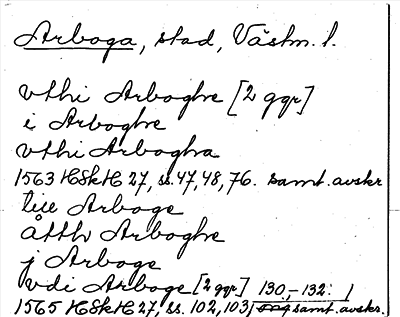 Arboga, stad, Västm. l.
vthi Arboghe [2 ggr]
i Arboghe
vthi Arbogha
1563 HSkH 27, ss. 47, 48, 76. samt. avskr.
till Arboge
åtth Arboghe
j Arboge
vdi Arboge [2 ggr] 130,-132:
1565 HSkH 27, ss. 102, 103, samt. avskr.